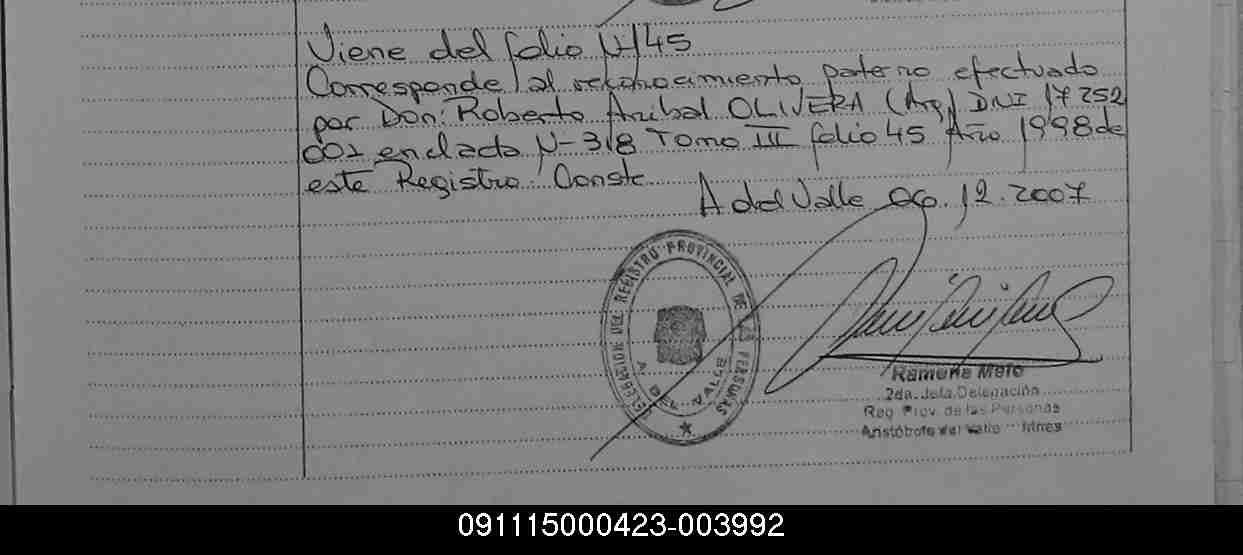 Viene del folio Nº 45
Corresponde al reconocimiento paterno efectuado
por Don: Roberto Anibal OLIVERA (Arg.) DNI 17 252
001 enclada Nº 318 Tomo III folio 45 Año 1998 de
este Registro. Conste
A del Valle Ago. 12. 2007
DELEGACION DEL REGISTRO PROVINCIAL DE LAS PERSONAS
A DEL VALLE
Ramona Melo
2da. Jefa Delegación
Reg. Prov. de las Personas
Aristóbulo del Valle - Mnes
091115000423-003992